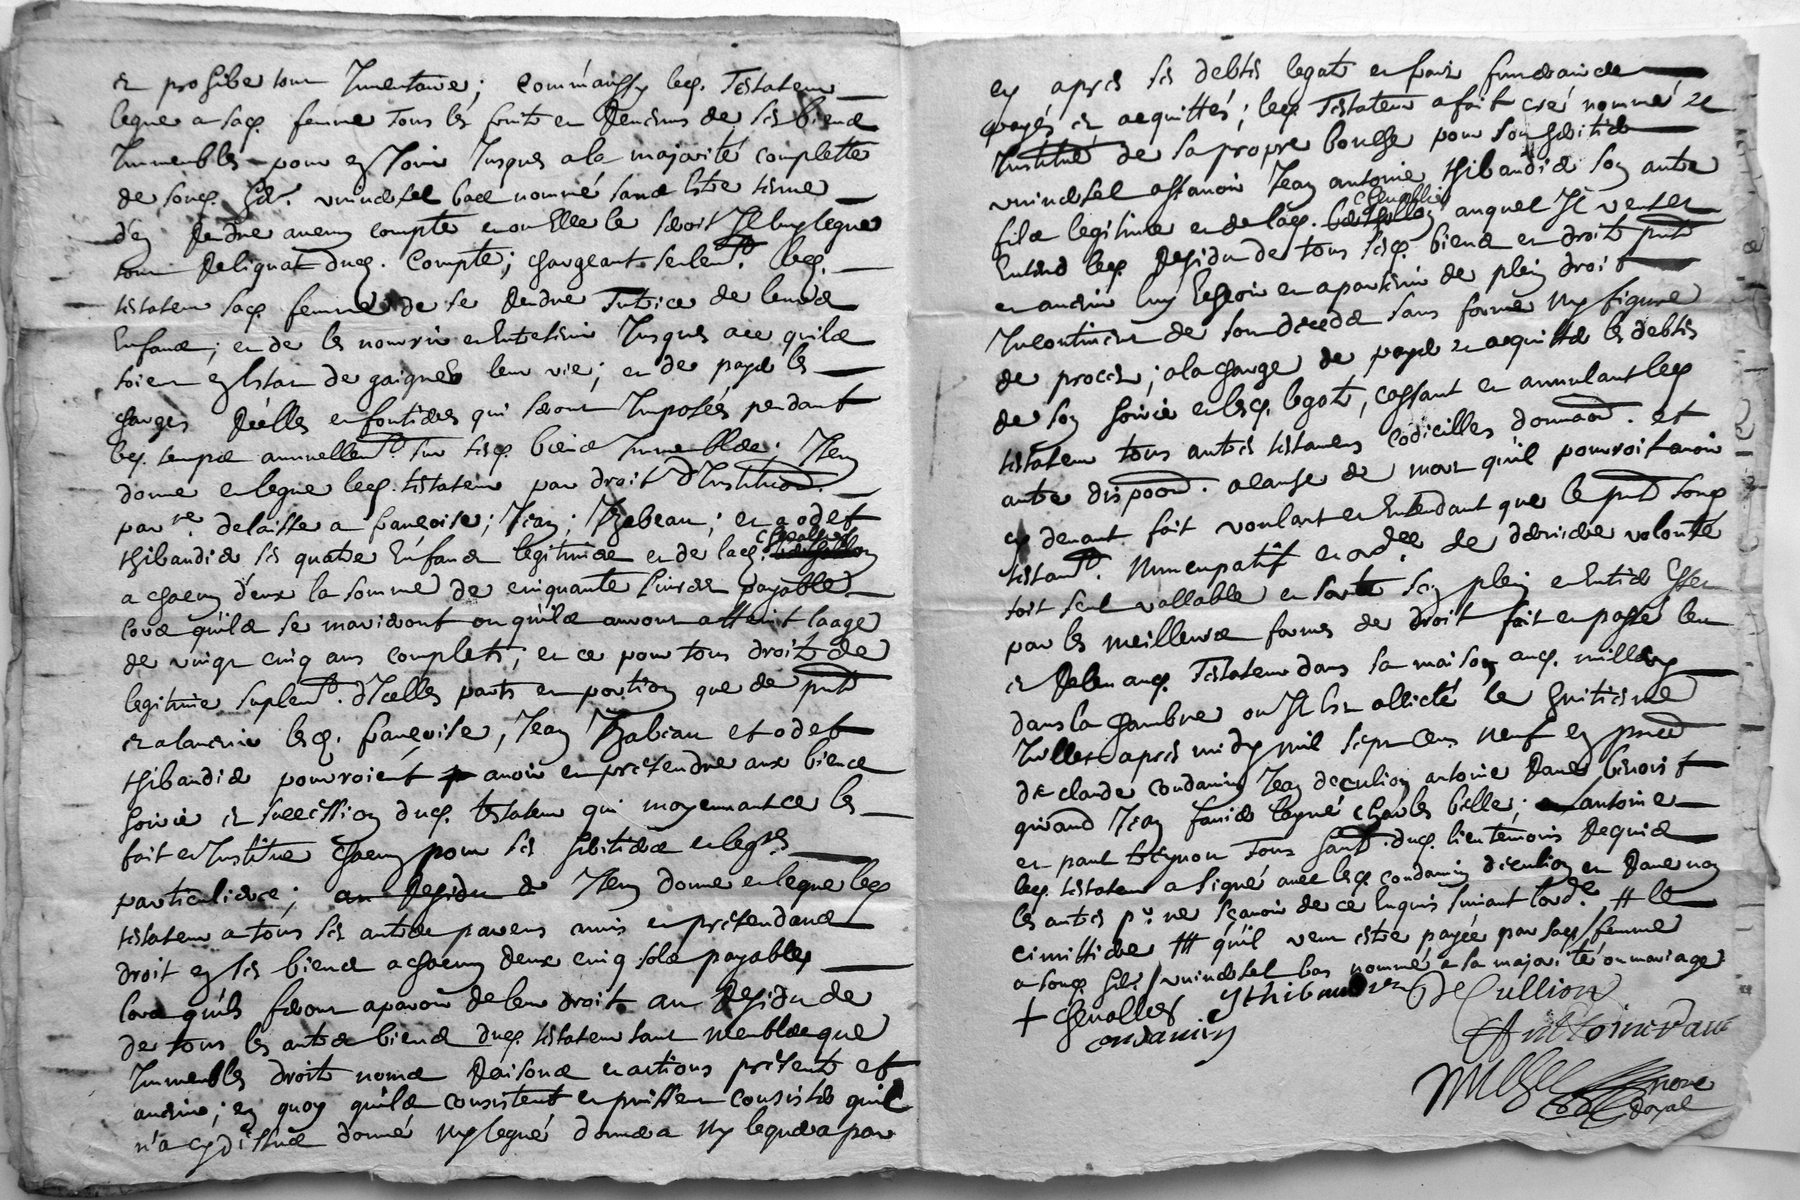 et prohibe tout Inventaire; Comm'aussy led. Testateur
legue a sad. femme tous les fruits et Revenus de ses biens
Immeubles pour en Jouir Jusques a la majorité complette
de sond. her. universel bas nommé sans estre tenue
d'en Rendre aucun compte et ou Elle le seroit Il luy legue
tout Reliquat dud. Compte; chargeant seulemt. led.
testateur sad. femme de se Rendre Tutrice de leurs
Enfans; et de les nourrir et Entretenir Jusques a ce quils
soient en Estat de gaigner leur vie; et de payer les
charges Réelles et fonticres qui seront Imposées pendant
led. temps annuellemt. sur sesd. biens Immeubles; Item
donne et legue led. testateur par droit d'Institution.
par re. delaisse a françoise; Jean; Izabeau; et odet
thibandier ses quatre Enfans legitimes et de lad. Chevallier
a chacun d'eux la somme de cinquante Livres payables
lors qu'ils se marieront ou qu'ils auront atteint laage
de vingt cinq ans complets; et ce pour tous droits de
legitime suplemt. d'Icelles parts et portion que de pnt
et a lavenir lesd. françoise, Jean Izabeau et odet
thibandier pourroient avoir et prétendre aux biens
hoirie et succession dud. testateur qui moyennant ce les
fait et Institue chacun pour ses heritiers et legres
particuliers; au Residu de Item donne et legue led
testateur a tous ses autres parens amis et prétendans
droit en ses biens a chacun deux cinq sols payables
lors qu'ils feront aparoir de leur droit. au Residu de
de tous les autres biens dud. testateur tant meubles que
Immeubles droits noms Raisons et actions présents et
avenir; en quoy qu'ils consistent et puissent consister qu'il
n'a cy dessus donné ny legué donnera ny leguera par
cy apres ses debtes legats et frais funeraires
payés et acquittés; led. Testateur a fait créé nommé et
Institué de sa propre bouche pour son heritier
universel assavoir Jean antoine thibandier son autre
fils legitime et de lad. Chevallier auquel Il veut et
Entend led. Residu de tous sesd. biens et droits pnts
et avenir luy Eschoir et apartenir de plein droit
Incontinent de son deceds sans forme ny figure
de procès; a la charge de payer et acquitter les debtes
de son hoirie et lesd. legats, cassant et annulant led
testateur tous autres testamens codicilles donnaon. et
autre dispoon. a cause de mort qu'il pourroit avoir
cy devant fait voulant et Entendant que le pnt sond
testamt. Nuncupatif et ordce de derniere volonté
soit seul vallable et sorte son plein et Entier Effet
par les meilleures formes de droit fait et passé leu
et Releu aud. Testateur dans sa maison aud. millery
dans la chambre ou Il Est allicté le huitiesme
Juillet apres midy mil sept cens neuf en pnce
de claude condamin Jean decullion antoine Rave benoist
girand Jean favier layné charles belle; antoine
et paul tous habts. dud. lieu temoins Requis
led. testateur a signé avec lesd. condamin decullion et Rave non
les autres pr. ne sçavoir de ce Enquis suivant lord.e # le
cimittiere ## qu'il veut estre payée par sad / femme
a sond. her. / universel bas nommé a sa majorité ou mariage
+ chevallier ythibandier DeCullion
condamin Anttoine Rave